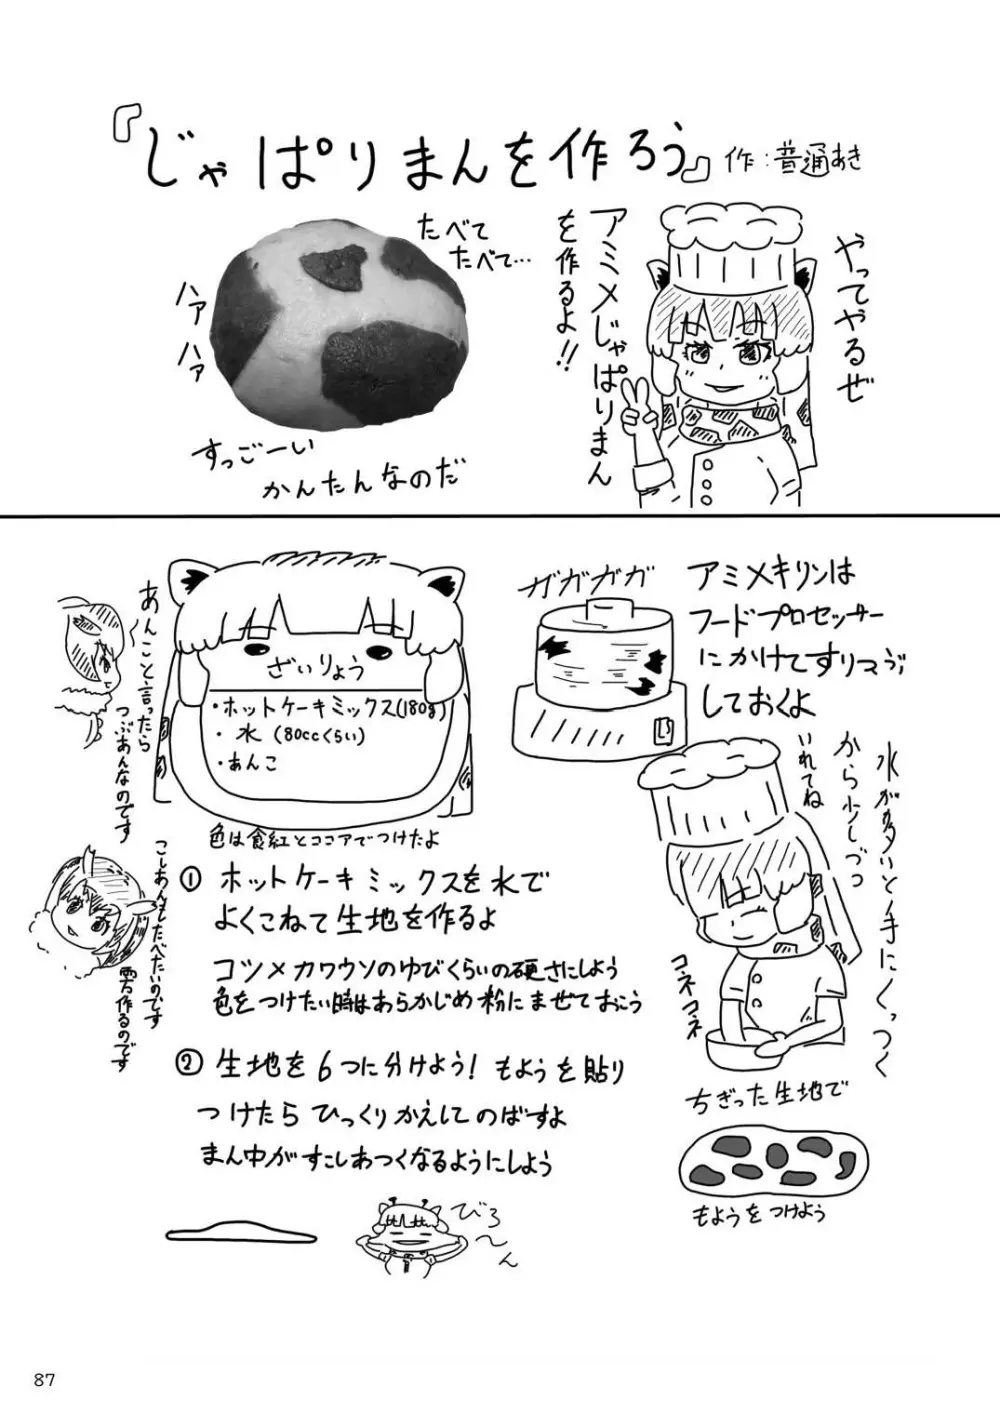 『じゃぱりまんを作ろう』
作：普通あき
やってやるぜ
アミメじゃぱりまん
を作るよ!!
たべて
たべて…
ハァ
ハァ
すっごーい
かんたんなのだ
アミメキリンは
フードプロセッサー
にかけてすりつぶ
しておくよ
ガガガガ
ざいりょう
・ホットケーキミックス(180g)
・水(80ccくらい)
・あんこ
色は食紅とココアでつけたよ
あんこと言ったら
つぶあんなのです
こしあんもたべたいのです
作るのです
水が多いと手にくっつく
から少しづつ
いれてね
コネコネ
① ホットケーキミックスを水で
よくこねて生地を作るよ
コツメカワウソのゆびくらいの硬さにしよう
色をつけたい時はあらかじめ粉にまぜておこう
② 生地を6つに分けよう！もようを貼り
つけたらひっくりかえしてのばすよ
まん中がすこしあつくなるようにしよう
ちぎった生地で
もようをつけよう
びろ
～ん
87